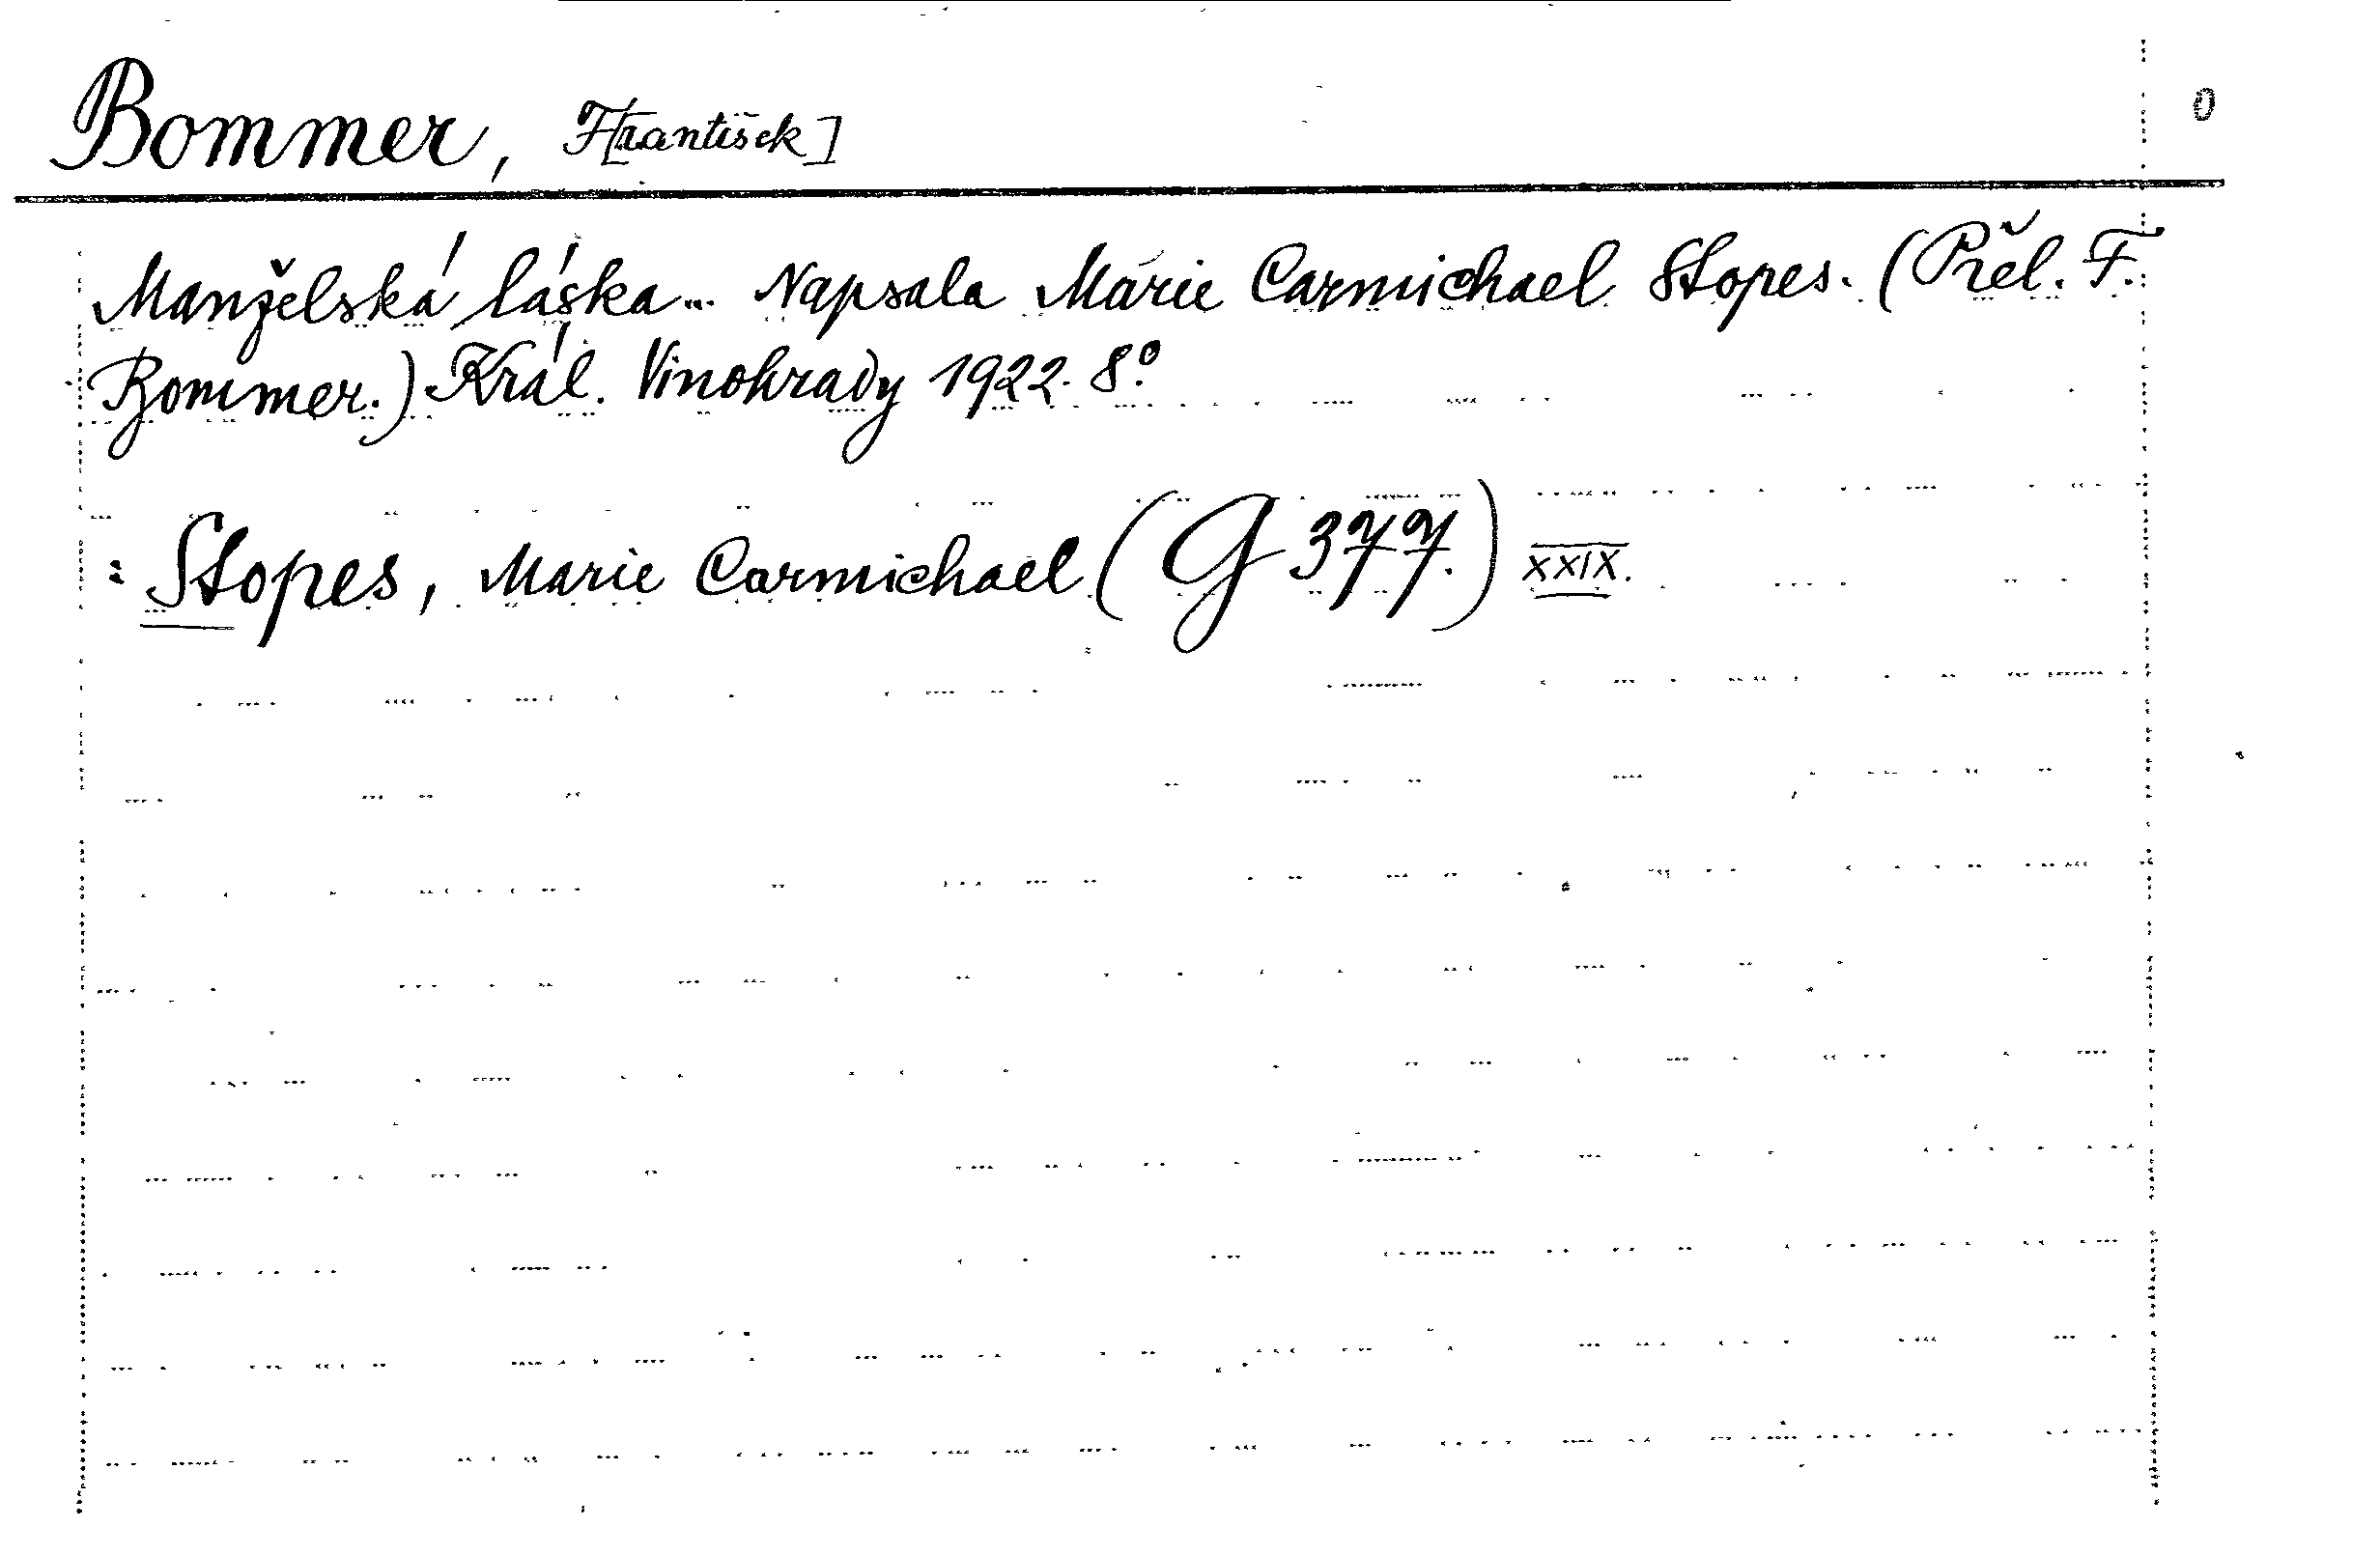 Bommer, F[rantišek] 0
Manželská láska... Napsala Marie Carmichael Stopes. (Přel. F.
Bommer.) Král. Vinohrady 1922. 8°.
: Stopes, Marie Carmichael (G 377.) XXIX.